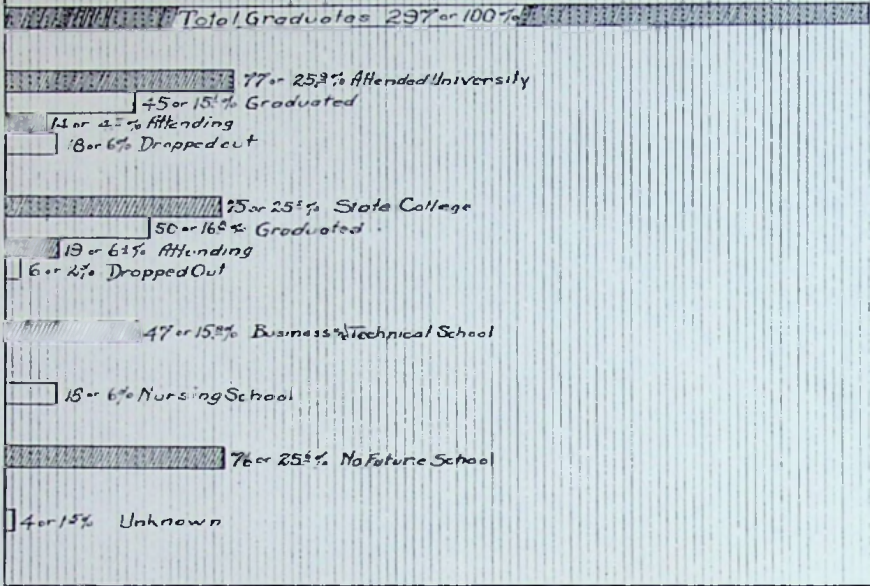 Total Graduates 297 or 100%
77 or 25.9% Attended University
45 or 15.1% Graduated
14 or % Attending
18 or 6% Dropped out
75 or 25.2% State College
50 or 16.8% Graduated
19 or 6.4% Attending
6 or 2% Dropped Out
47 or 15.8% Business Technical School
18 or 6% Nursing School
76 or 25.6% No Future School
4 or 1.5% Unknown